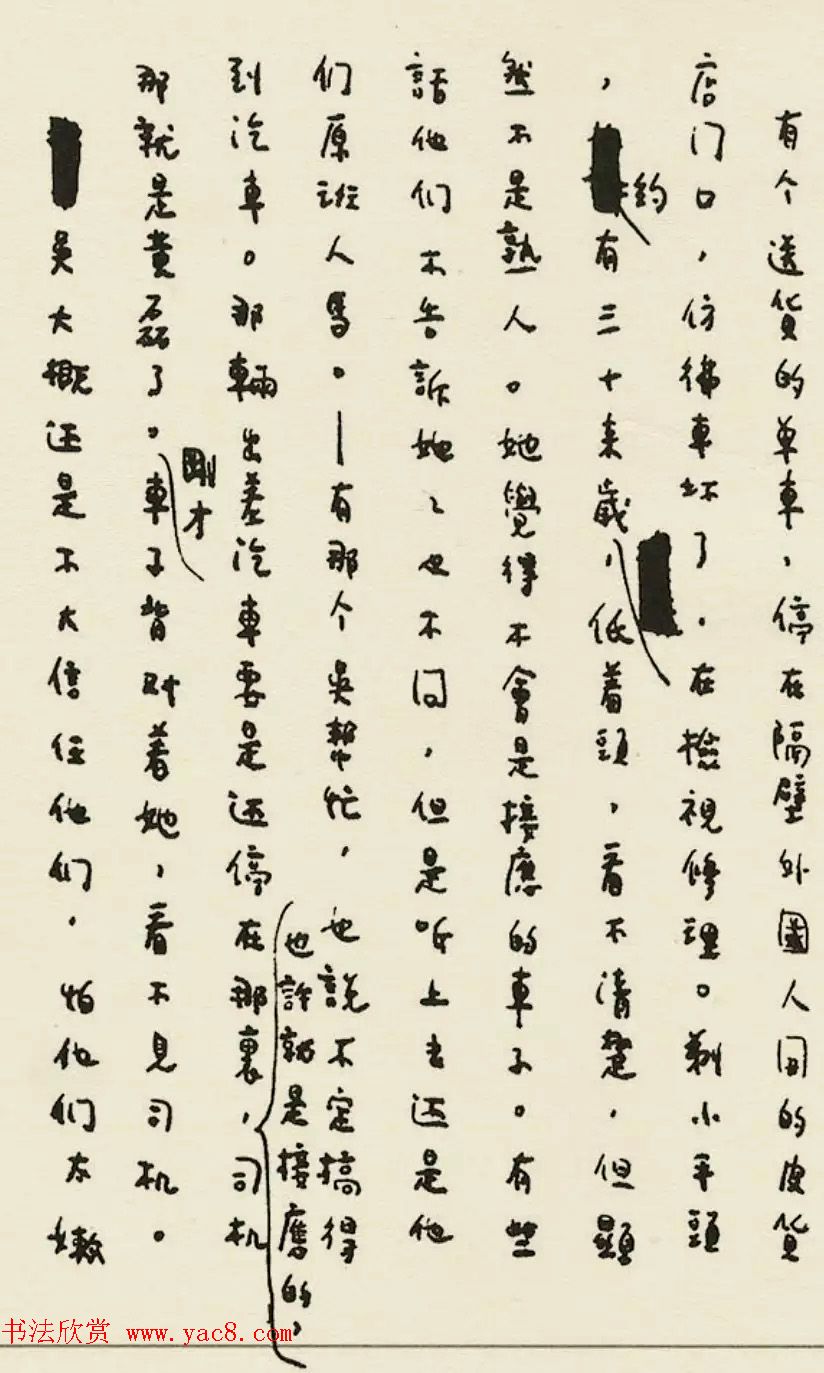 有个送貨的单車,停在隔壁外國人开的皮貨
店门口,仿彿車坏了,在檢視修理。剃小平頭
,約有三十来歲,低着頭,看不清楚,但顯
然不是熟人。她覺得不會是接應的車子。有些
話他们不告訴她她也不问,但是听上去还是他
们原班人馬。—有那个吳幫忙,也説不定搞得
到汽車。那輛出差汽車要是还停在那裏,司机
也許就是接應的,
那就是黄磊了。剛才車子背对着她,看不見司机。
吳大概还是不大信任他们,怕他们太嫩
书法欣赏 www.yac8.com